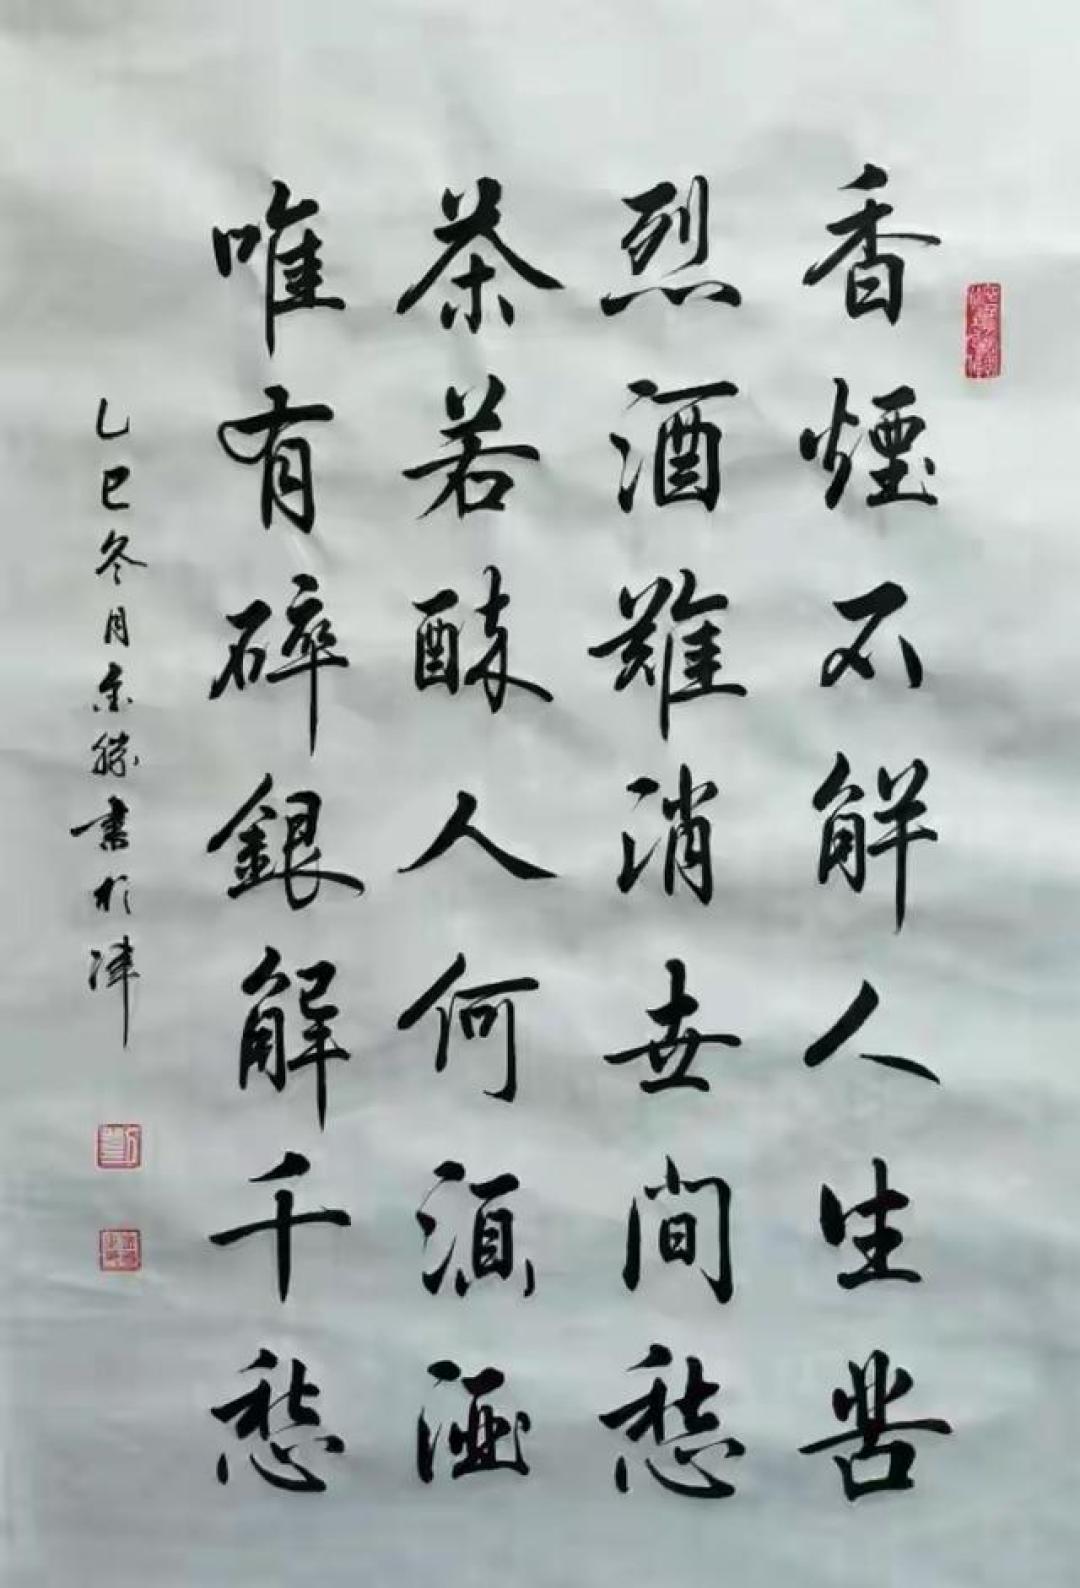 香煙不解人生苦
烈酒難消世間愁
茶若醉人何須酒
唯有碎銀解千愁
乙巳冬月書於津